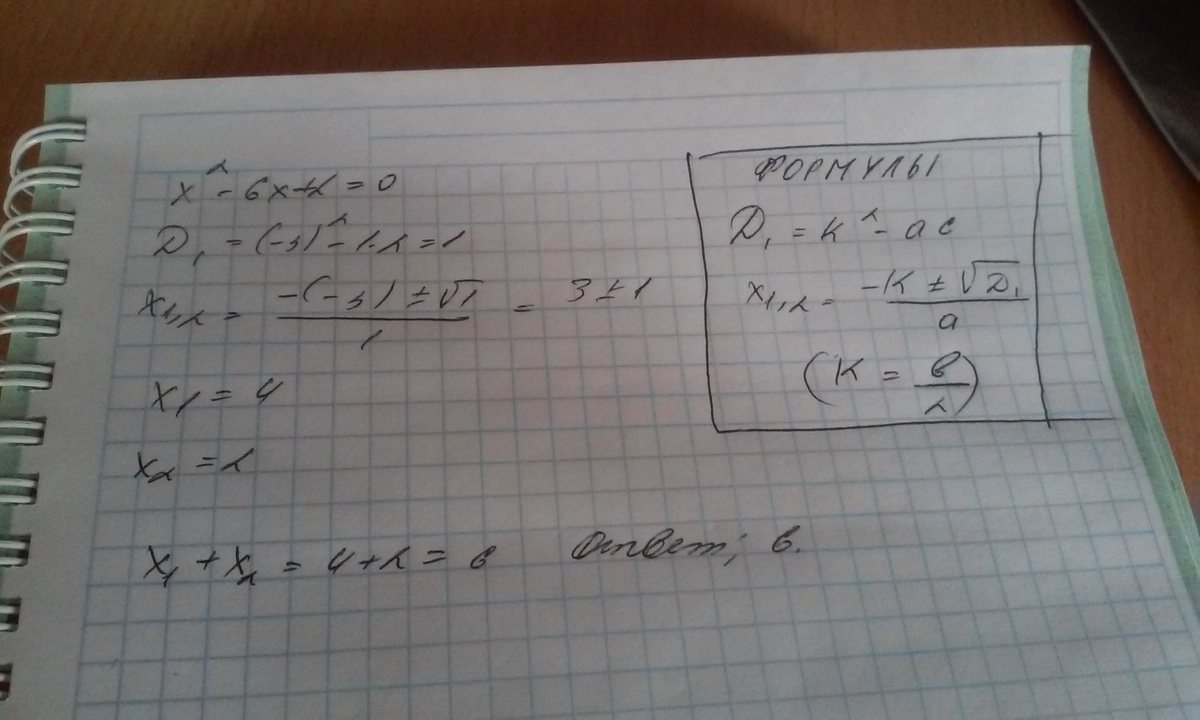 x² - 6x + 2 = 0
D₁ = (-3)² - 1·2 = 1
x₁,₂ = (-(-3) ± √1) / 1 = 3 ± 1
x₁ = 4
x₂ = 2
x₁ + x₂ = 4 + 2 = 6 Ответ; 6.
ФОРМУЛЫ
D₁ = k² - ac
x₁,₂ = (-K ± √D₁) / a
(K = в/2)